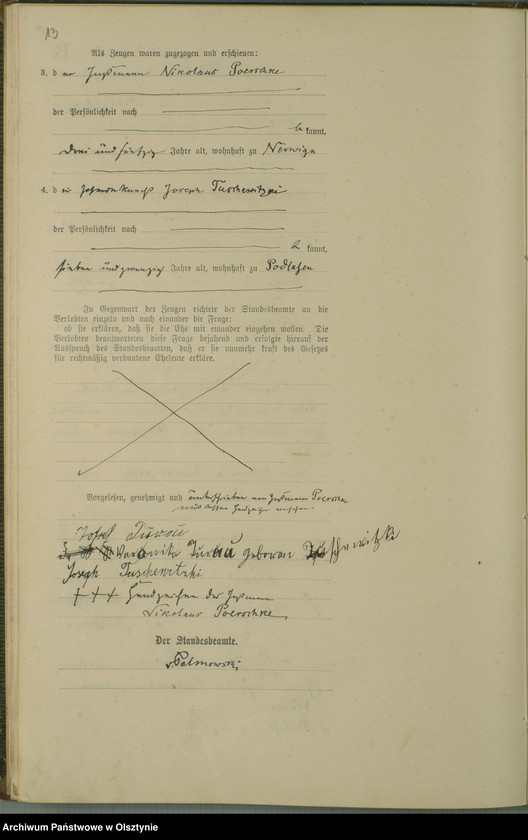 13
Als Zeugen waren zugezogen und erschienen:
3. d er Inßmann Nikolaus Poerschke
der Persönlichkeit nach
kannt,
drei und fünfzig Jahre alt, wohnhaft zu Nerwigk
4. d er Joseph Tuschewitzki
der Persönlichkeit nach
kannt,
sieben und zwanzig Jahre alt, wohnhaft zu Podlassen
In Gegenwart der Zeugen richtete der Standesbeamte an die
Verlobten einzeln und nach einander die Frage:
ob sie erklären, daß sie die Ehe mit einander eingehen wollen. Die
Verlobten beantworteten diese Frage bejahend und erfolgte hierauf der
Ausspruch des Standesbeamten, daß er sie nunmehr kraft des Gesetzes
für rechtmäßig verbundene Eheleute erkläre.
Vorgelesen, genehmigt und unterschrieben vom Inßmann Poerschke
Handzeichen versehen
Josef Turau
Turau geboran
Joseph Tuschewitzki
+++ Handzeichen des Inßmann
Nikolaus Poerschke
Der Standesbeamte.
v. Palmowski
Archiwum Państwowe w Olsztynie